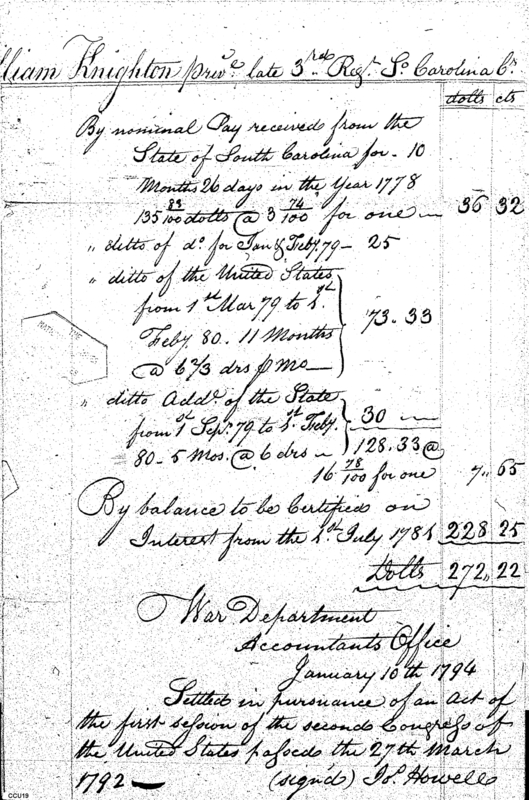 lliam Knighton priv.e late 3.rd Reg.t So Carolina Cr
dolls cts
By nominal Pay received from the
State of South Carolina for - 10
Months 26 days in the Year 1778
135 83/100 dolls @ 3 74/100 for one — 36 32
" ditto of d.o for Jan & Feby. 79 — 25
" ditto of the United States
from 1st Mar 79 to 1.st
Feby. 80. 11 Months 73. 33
@ 6 2/3 drs p Mo —
" ditto Add.l of the State
from 1st Sep.r 79 to 1.st Feby. 30 —
80 - 5 Mos. @ 6 drs — 128.33 @
16 78/100 for one 7,, 65
By balance to be Certified on
Interest from the 1.st July 1781 228 25
Dolls 272,, 22
War Department
Accountants Office
January 10th 1794
Settled in pursuance of an Act of
the first session of the second Congress of
the United States passed the 27th March
1792 — (signd) Jo.s Howell
CCU19